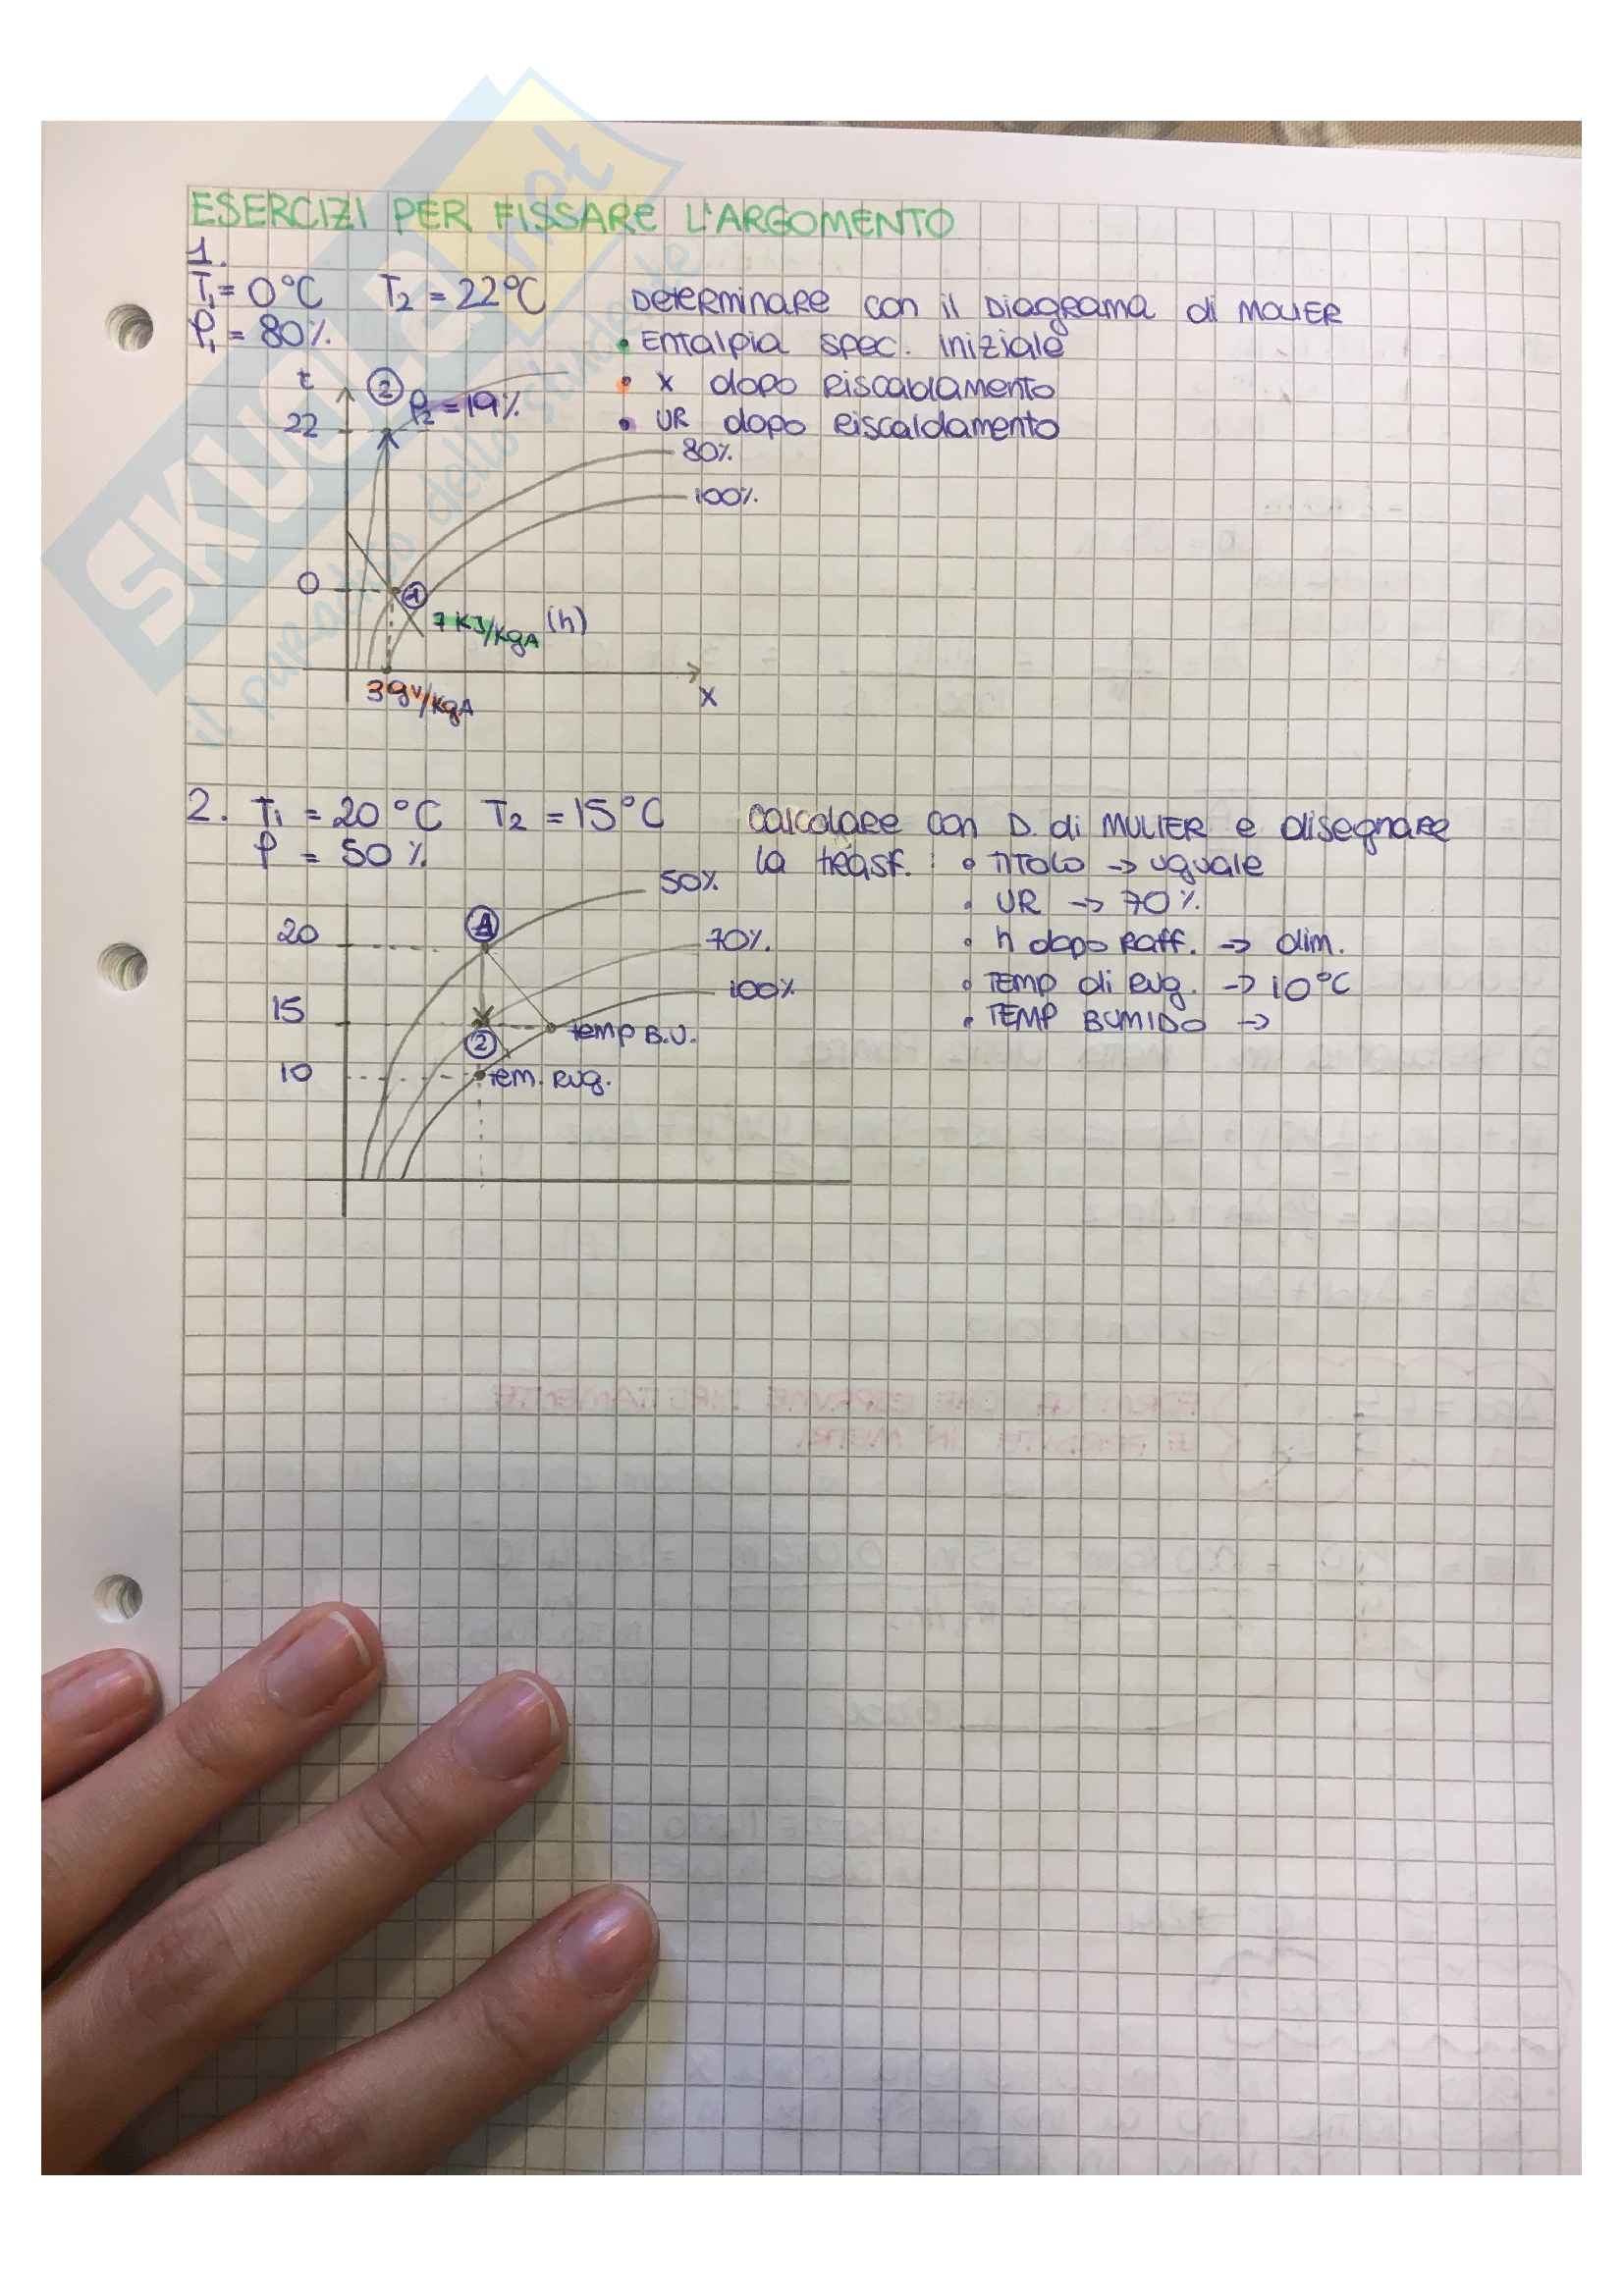 ESERCIZI PER FISSARE L'ARGOMENTO
1.
T₁ = 0°C T₂ = 22°C Determinare con il Diagrama di MOLIER
φ₁ = 80% • Entalpia spec. iniziale
• x dopo riscaldamento
• UR dopo riscaldamento
t
② φ₂ = 19%
22
80%
100%
0
①
7 KJ/KgA (h)
3 gv/KgA
x
2. T₁ = 20°C T₂ = 15°C calcolare con D. di MULIER e disegnare
φ = 50% la trasf. : • TITOLO → uguale
50%
• UR → 70%
20
①
70%
• h dopo raff. → dim.
100%
• TEMP di rug. → 10°C
15
• TEMP B UMIDO →
②
temp B.U.
10
tem. rug.
SKUOLA.net
il paradiso dello studente